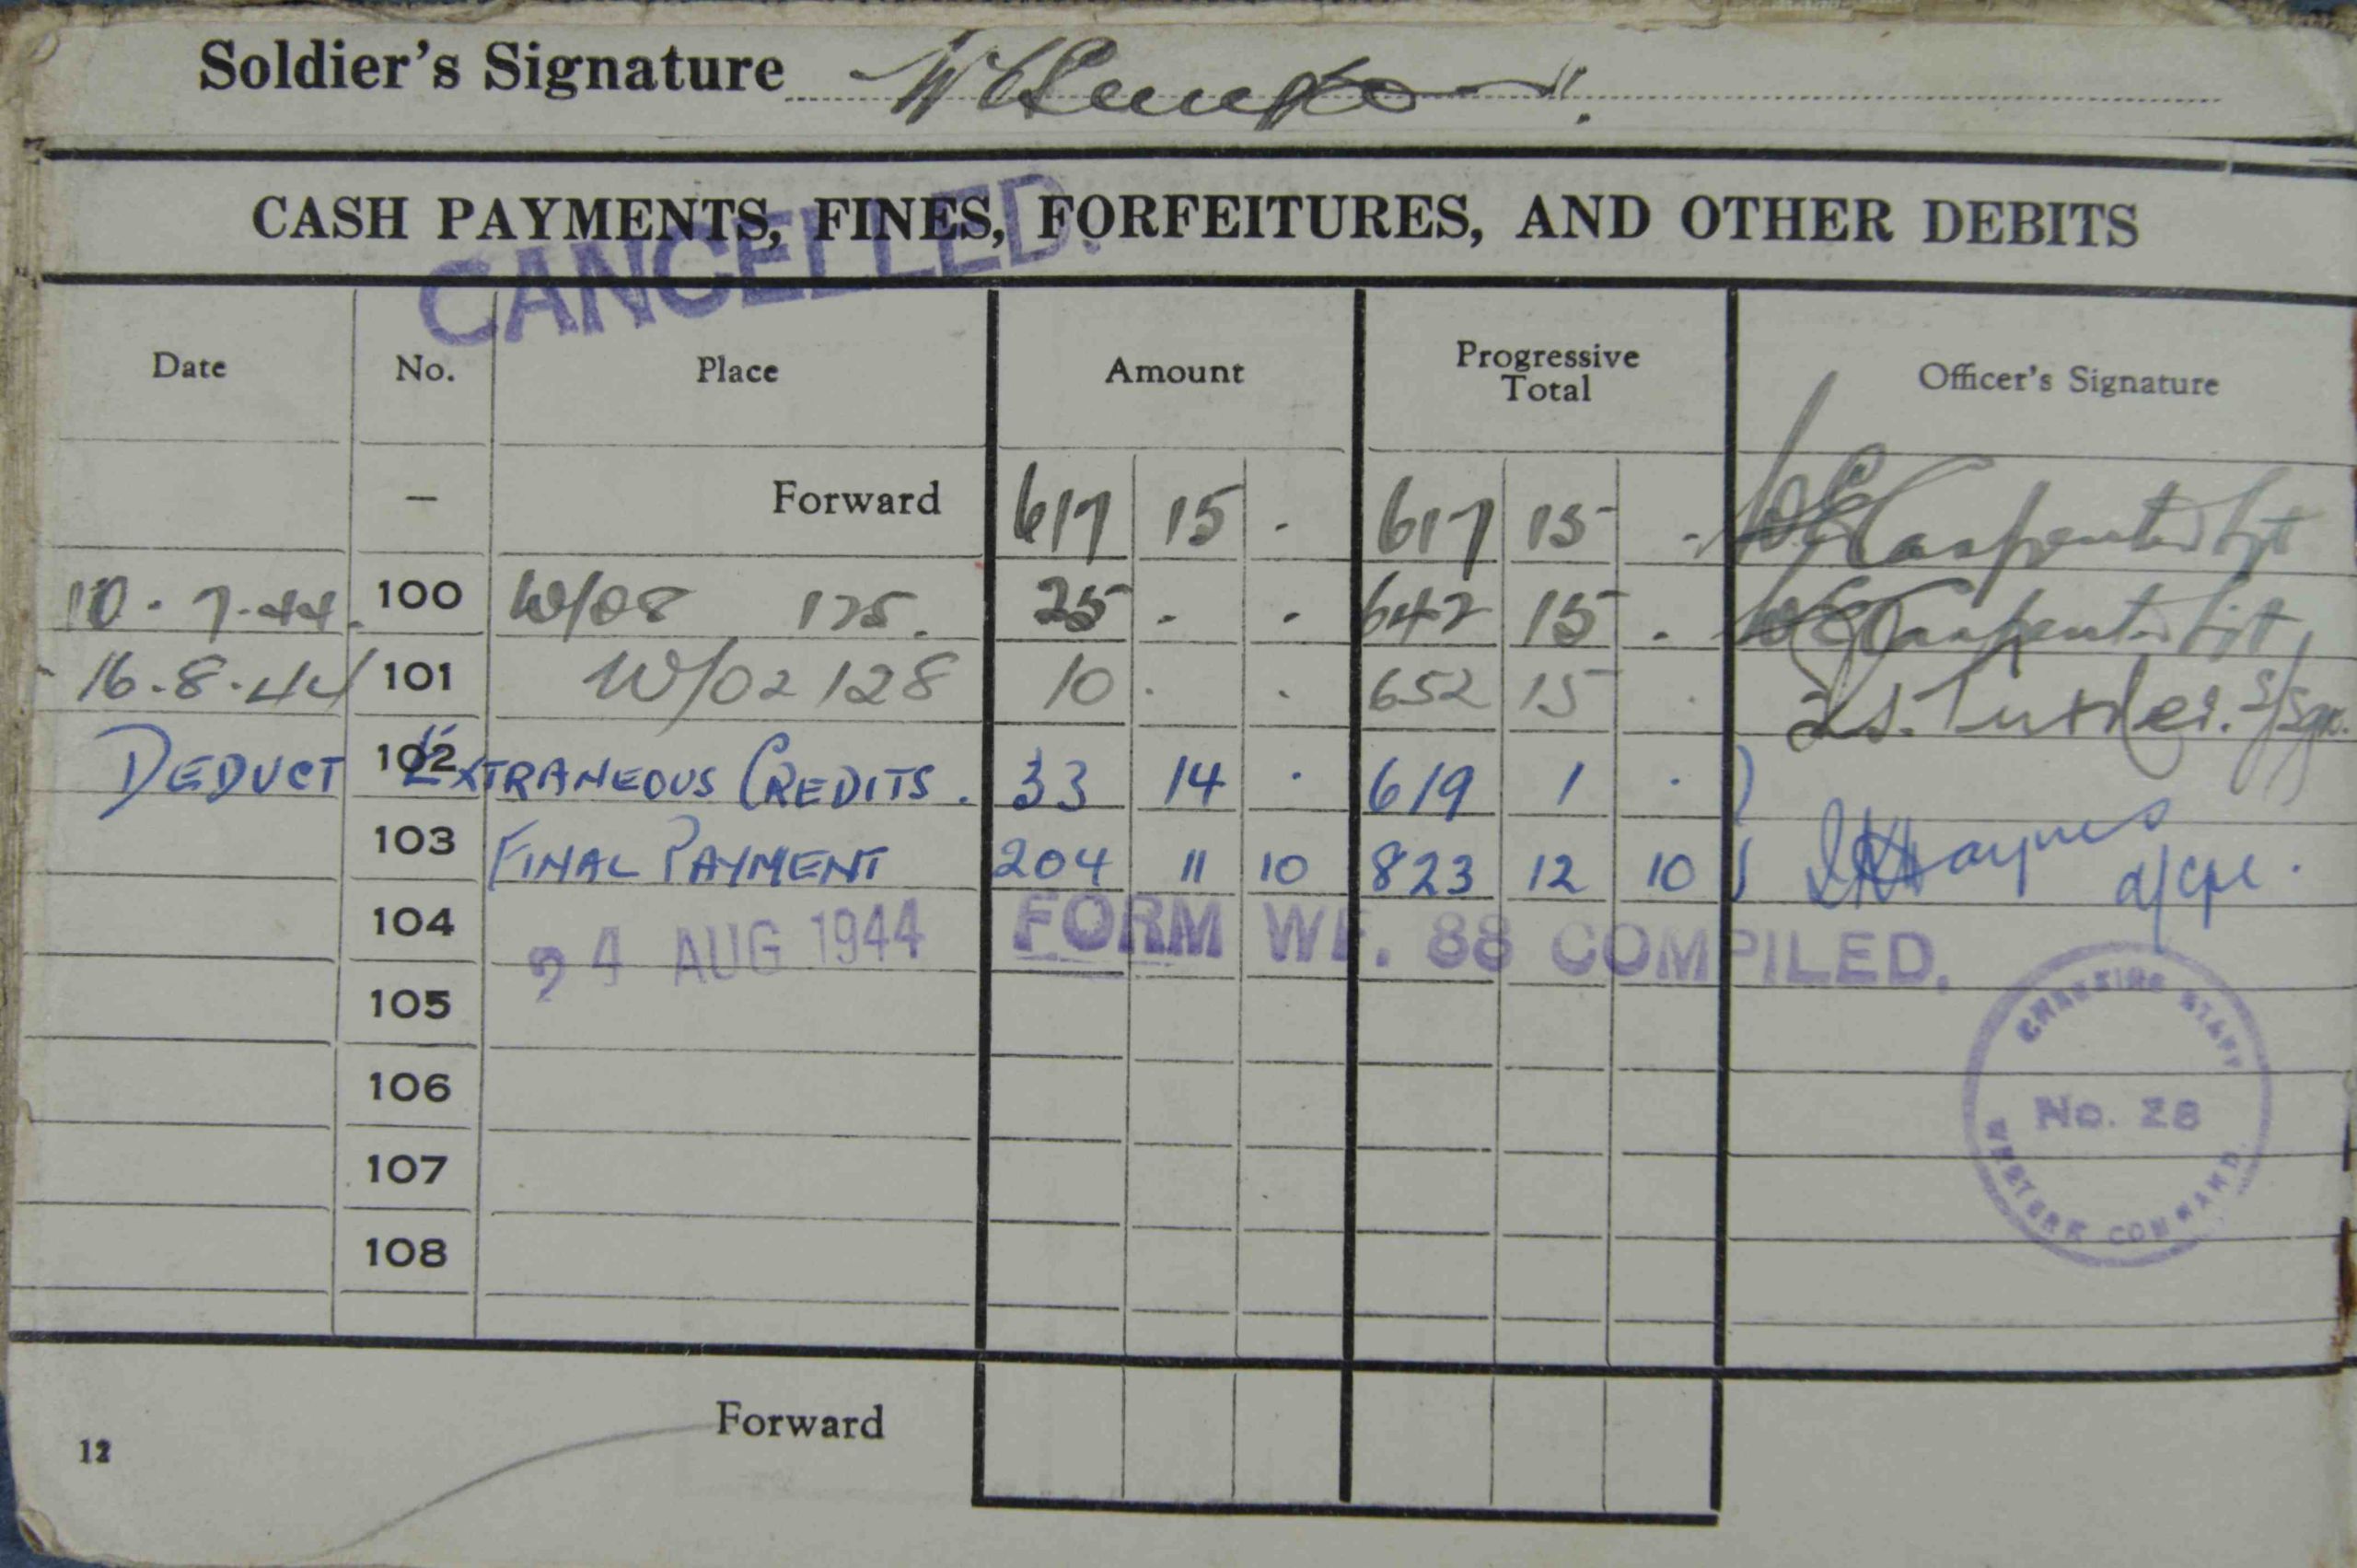 Soldier's Signature
CASH PAYMENTS, FINES, FORFEITURES, AND OTHER DEBITS
CANCELLED.
Date No. Place Amount Progressive Total Officer's Signature
– Forward 617 15 . 617 15 - . W E Carpenter Lt
10.7.44. 100 W/08 125. 25 . . 642 15 . W E Carpenter Lt
16.8.44 101 W/02 128 10 . . 652 15 . S/Sgt.
DEDUCT 102 EXTRANEOUS CREDITS. 33 14 . 619 1 .
103 FINAL PAYMENT 204 11 10 823 12 10 Haynes a/Cpl.
104
24 AUG 1944 FORM WF. 88 COMPILED.
105
106
107
108
CHECKING STAFF
No. 28
WESTERN COMMAND.
Forward
12